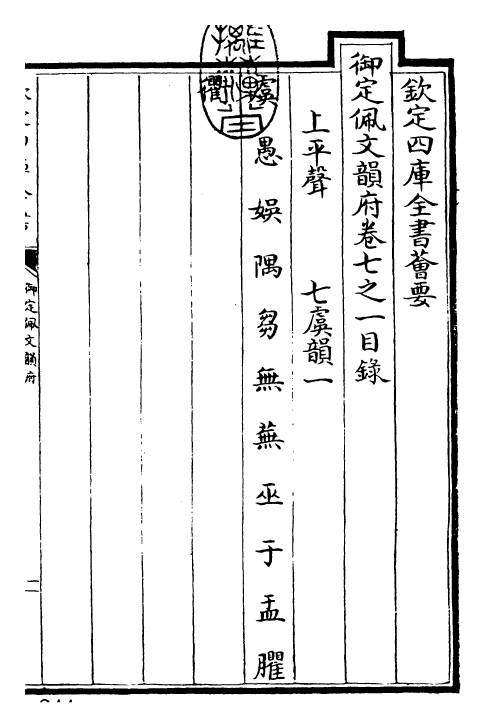 欽定四庫全書薈要
御定佩文韻府卷七之一目錄
上平聲　七虞韻一
虞愚娛隅芻無蕪巫于盂臞
衢
御定佩文韻府